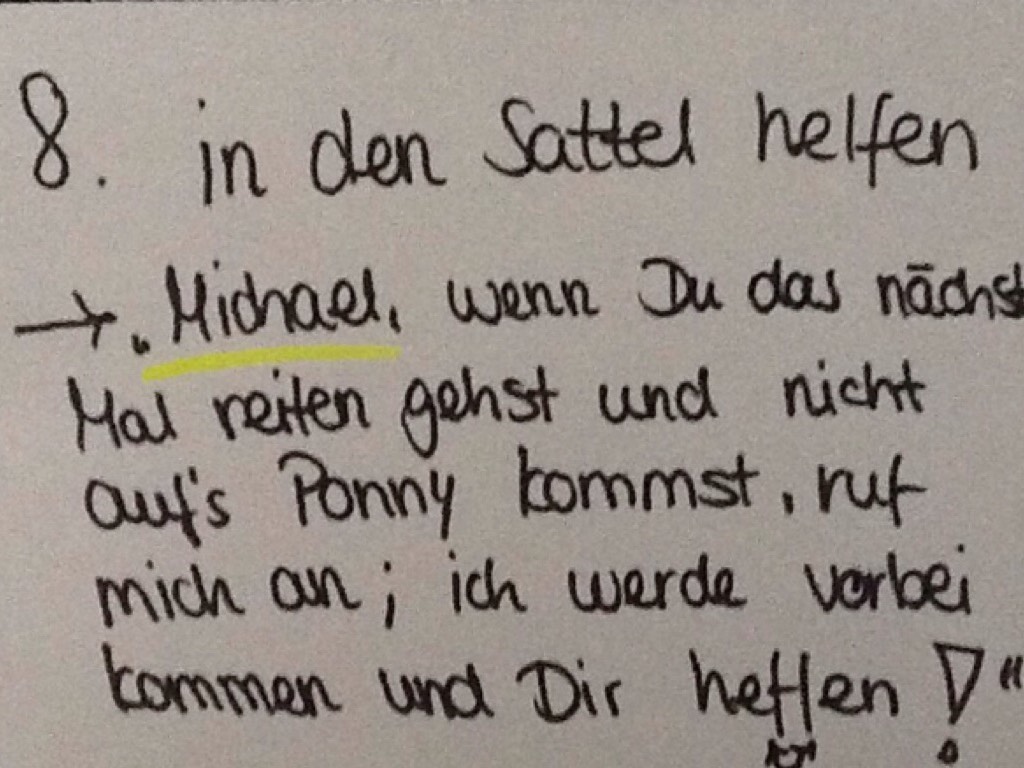 8. in den Sattel helfen
→ „Michael, wenn Du das nächst
Mal reiten gehst und nicht
auf's Ponny kommst, ruf
mich an; ich werde vorbei
kommen und Dir helfen!“